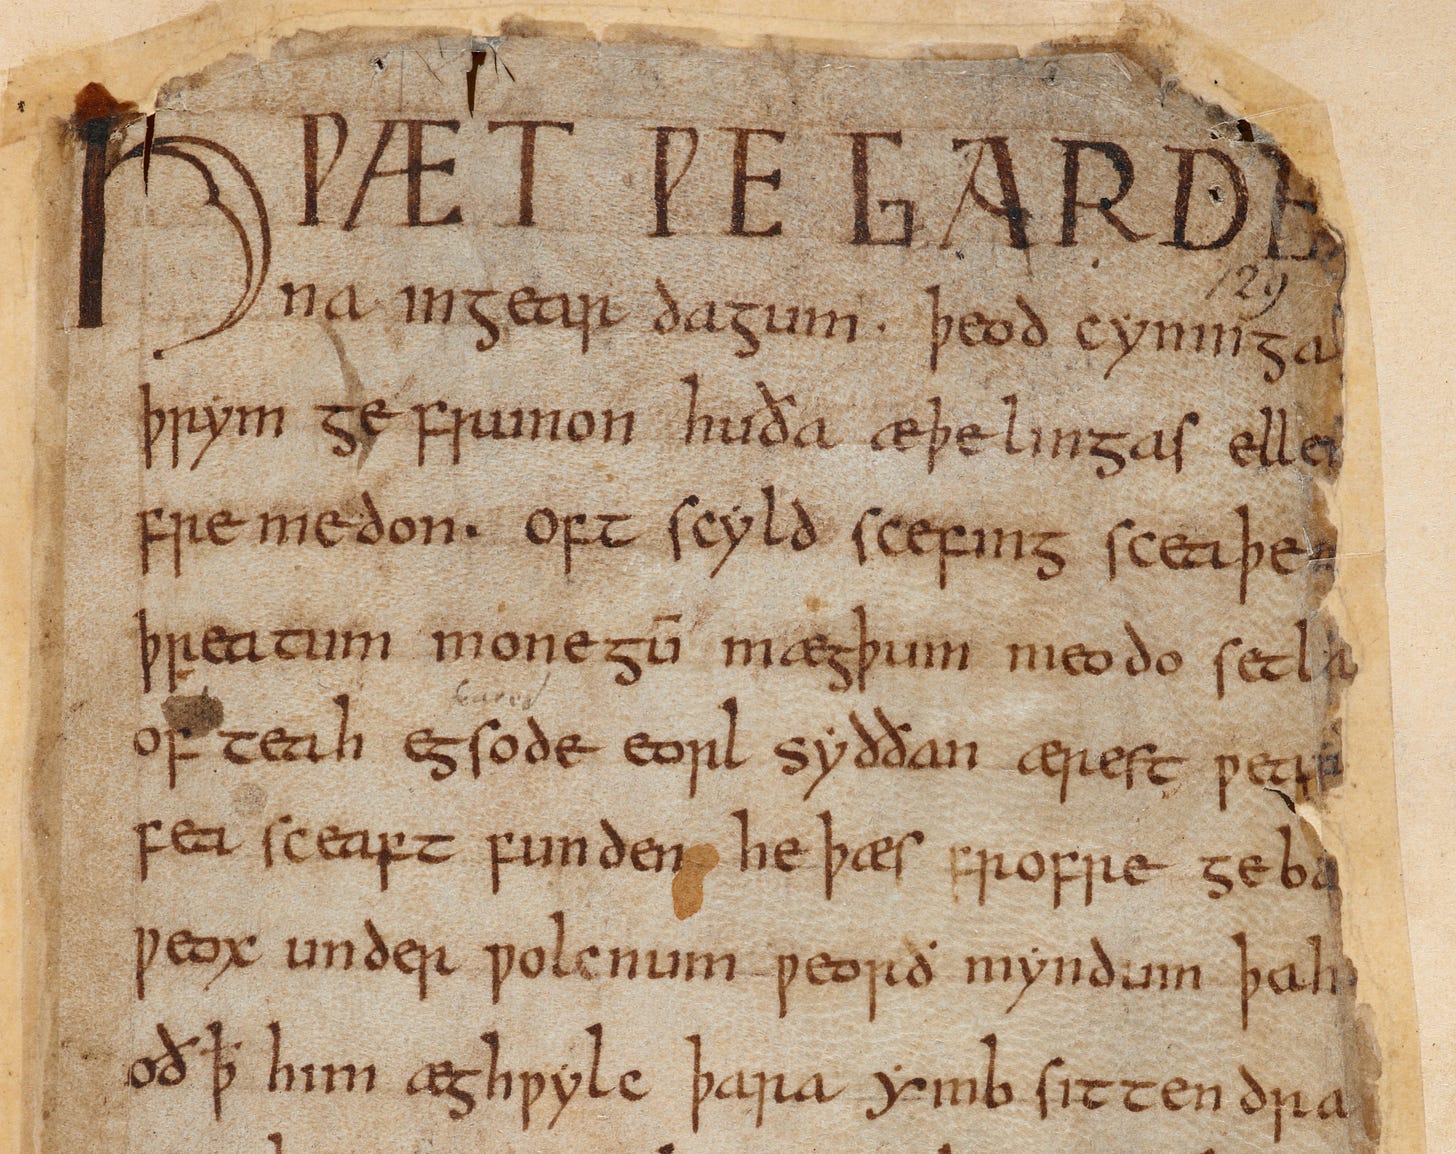 HǷÆT ǷE GARDE
129
na ingear dagum. þeod cyninga
þrym ge frunon huða æþelingas ellen
fremedon. oft scyld scefing sceaþen
þreatum monegū mægþum meodo setla
of teah egsode eorl syððan ærest ƿear
fea sceaft funden he þæs frofre geba
ƿeox under ƿolcnum ƿeorð myndum þah
oð ꝥ him æghƿylc þara ymb sittendra